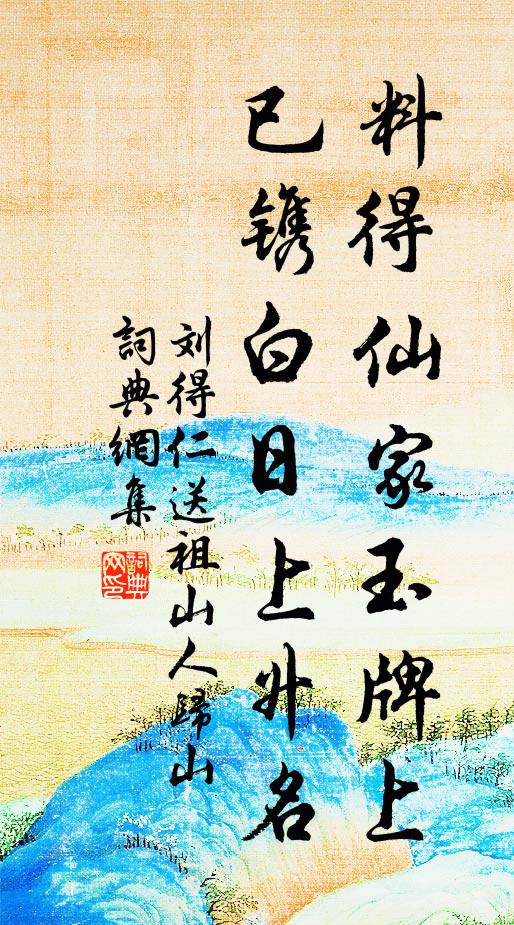 料得仙家玉牌上
已镌白日上升名
刘得仁送祖山人歸山
詞典網集
詞典
网印